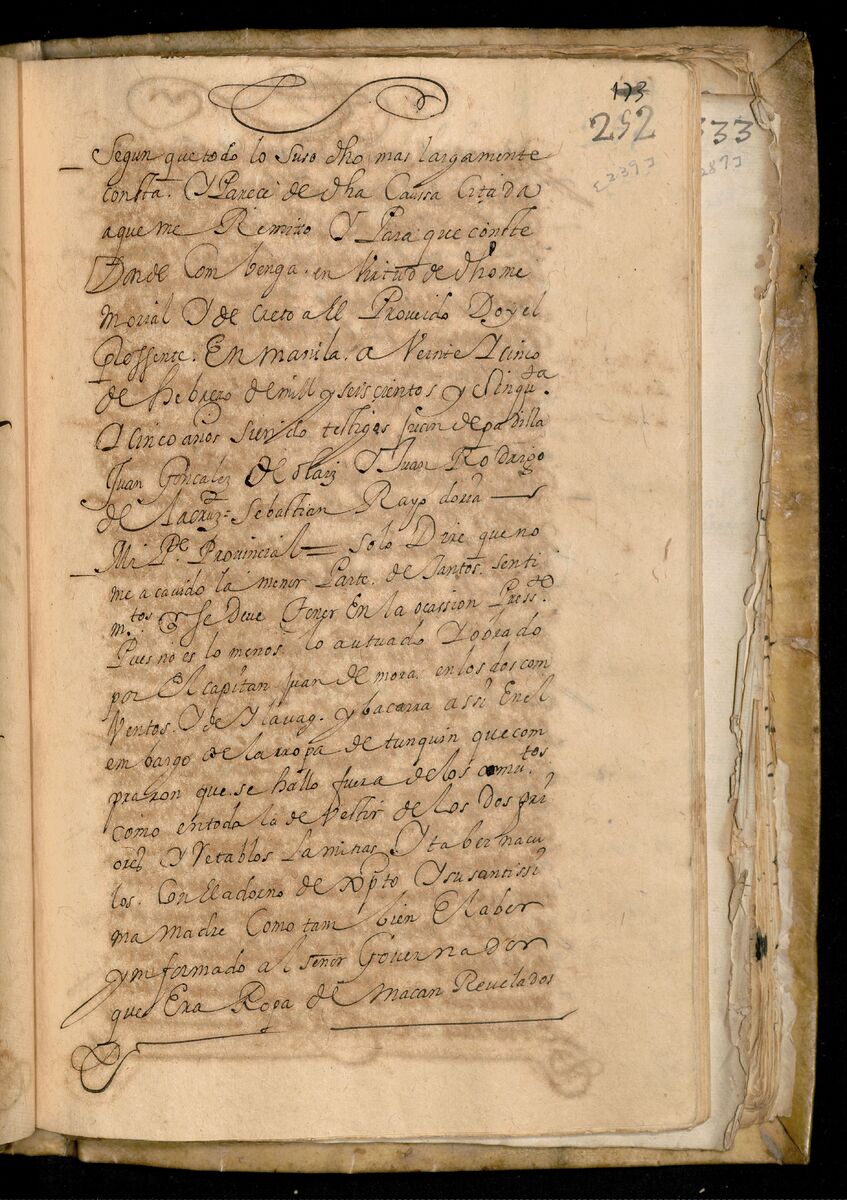 173
252
[239]
333
287]
Segun que todo lo suso dho mas largamente
consta. Y Parece de dha Caussa Citada
aque me Remito Y Para que conste
Donde Combenga. en Virtud de dho me
morial Y de creto a el Proueido Doy el
Pressente. En manila. a Veinte Y cinco
de hebrero de mill y seiscientos y Sinqta.
Y cinco años siendo testigos Juan de padilla
Juan Gonçalez de olaiz Y Juan Rodrigo
de la cruz = Sebastian Rayo doria
Mi Pe. Provincial = solo Dire que no
me a cauido la menor Parte. de Tantos. senti
mtos. q se deue Tener En la ocassion Presste.
Pues no es lo menos. lo autuado Y obrado
por El capitan Juan de mora. en los dos com
Ventos. Y de Ylauag. y bacarra assi En el
embargo de la rropa de tunquin que com
praron que se hallo fuera de los comutos.
como en toda la de Vestir de los Dos pri
ores Y Retablos Laminas Y tabernacu
los. Con El adorno de Xpto Y su santissi
ma Madre Como tam bien El aber
ynformado al señor Gouernador
que Era Ropa de Macan Reuelados